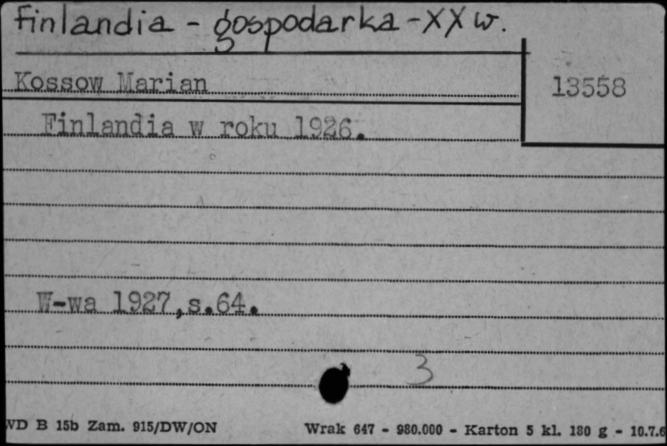 Finlandia - gospodarka - XX w.
Kossow Marian
13558
Finlandia w roku 1926.
W-wa 1927,s.64.
3
WD B 15b Zam. 915/DW/ON
Wrak 647 - 980.000 - Karton 5 kl. 180 g - 10.7.6